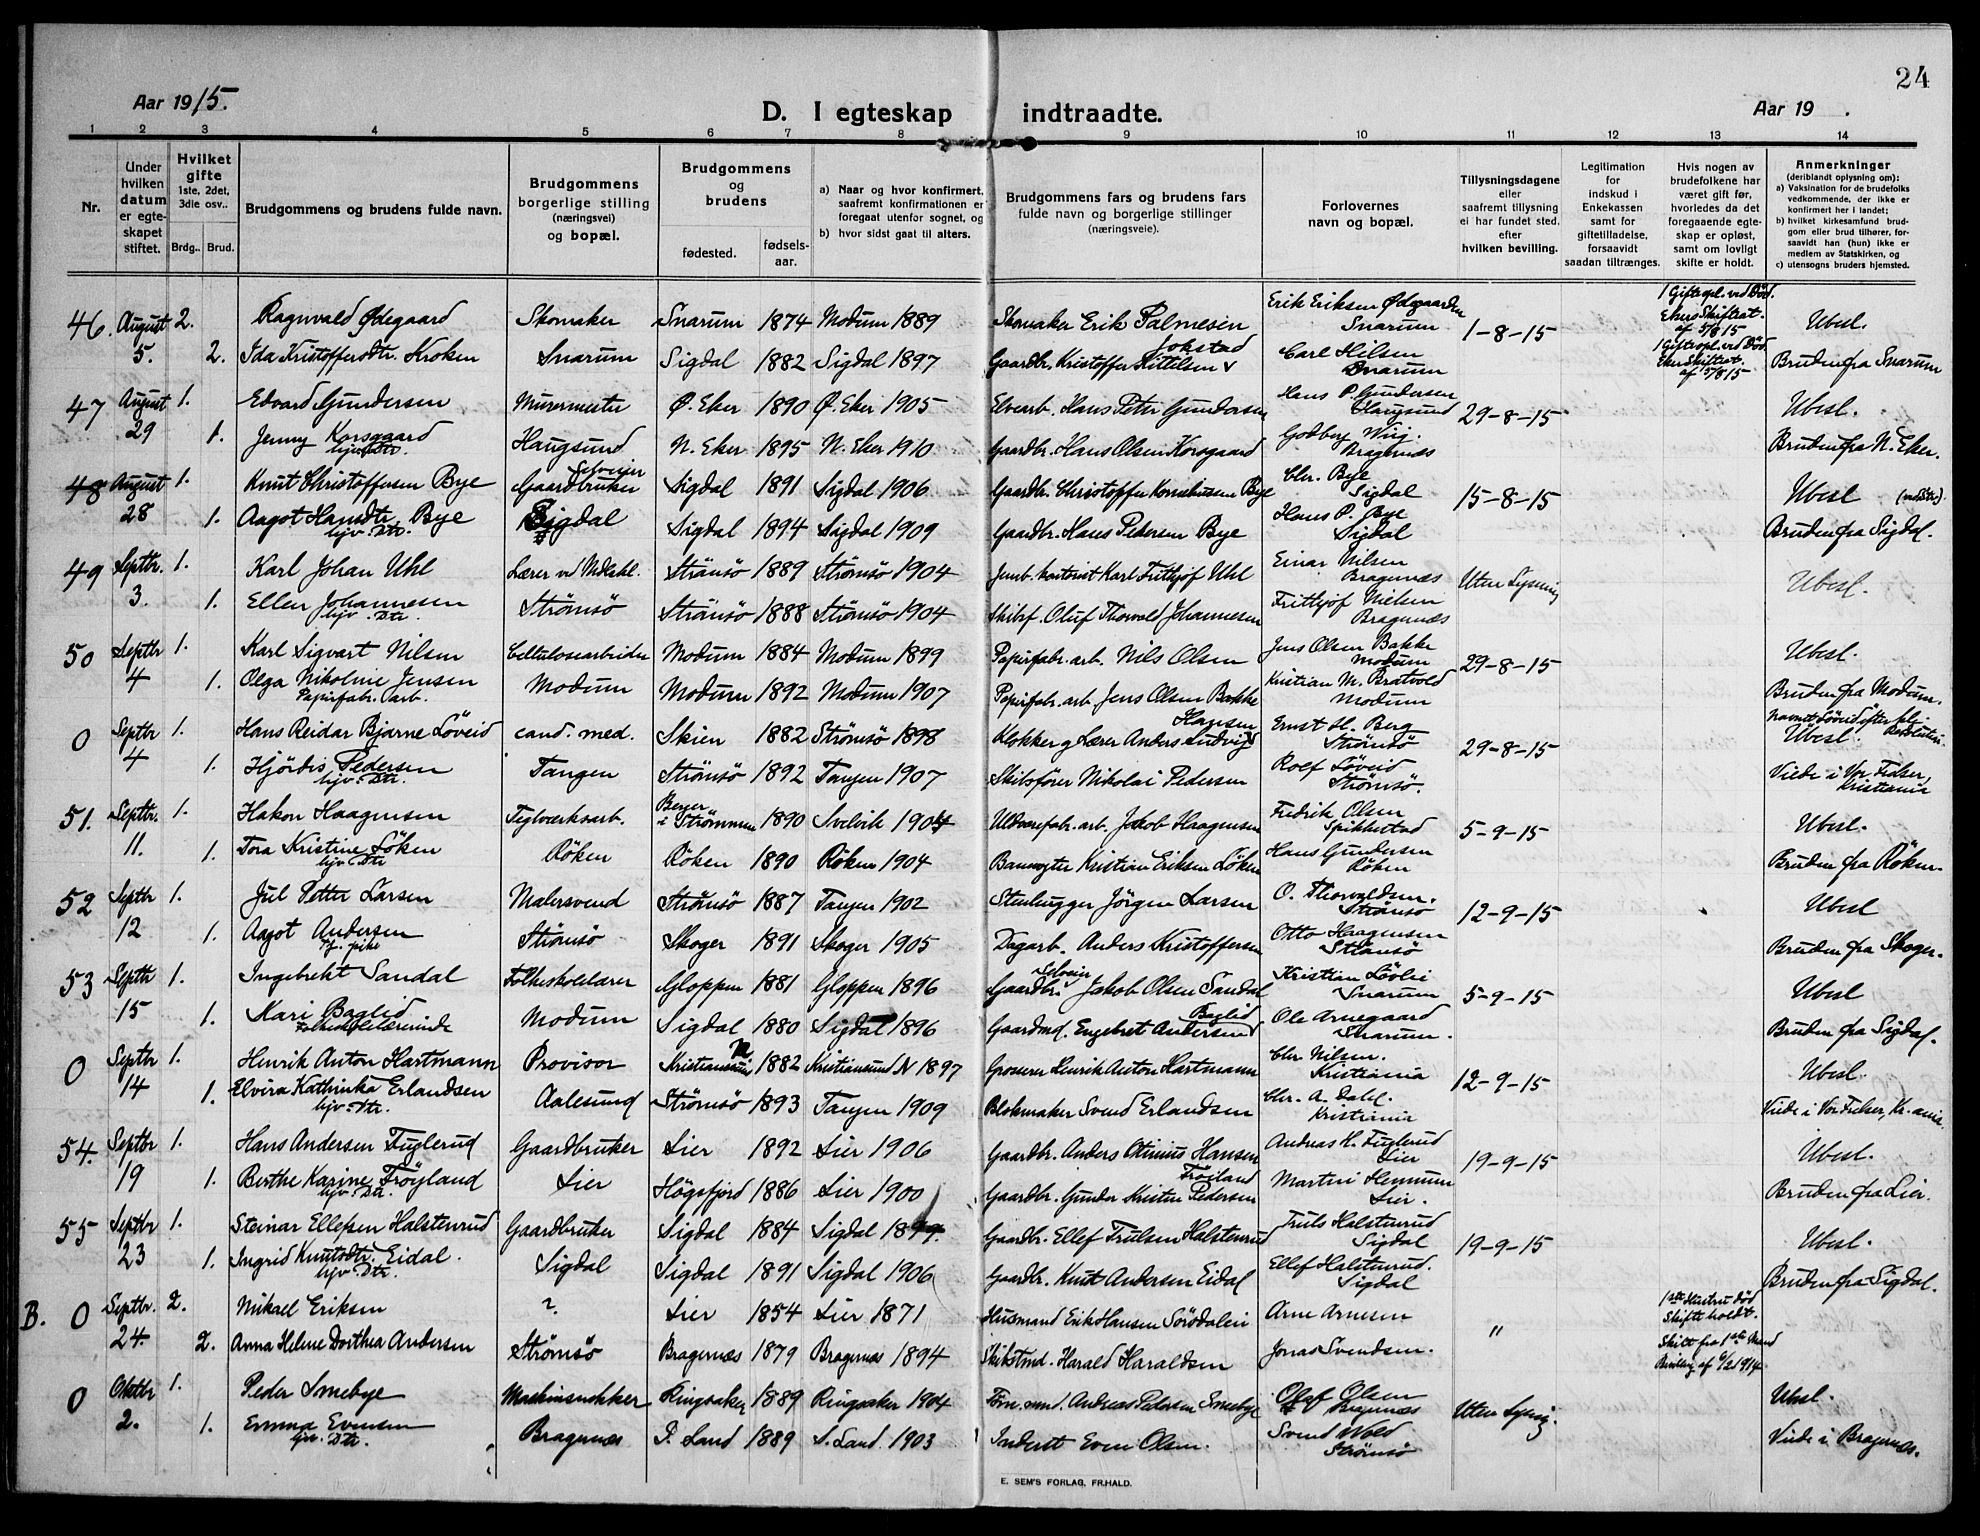 24
Aar 1915.
D. I egteskap indtraadte.
Aar 19 .
1 2 3 4 5 6 7 8 9 10 11 12 13 14
Nr.
Under hvilken datum er egteskapet stiftet.
Hvilket gifte 1ste, 2det, 3die osv..
Brdg.. Brud.
Brudgommens og brudens fulde navn.
Brudgommens borgerlige stilling (næringsvei) og bopæl.
Brudgommens og brudens
fødested.
fødselsaar.
a) Naar og hvor konfirmert, saafremt konfirmationen er foregaat utenfor sognet, og
b) hvor sidst gaat til alters.
Brudgommens fars og brudens fars fulde navn og borgerlige stillinger (næringsveie).
Forlovernes navn og bopæl.
Tillysningsdagene eller saafremt tillysning ei har fundet sted. efter hvilken bevilling.
Legitimation for indskud i Enkekassen samt for giftetilladelse, forsaavidt saadan tiltrænges.
Hvis nogen av brudefolkene har været gift før, hvorledes da det foregaaende egteskap er opløst, samt om lovligt skifte er holdt.
Anmerkninger (deriblandt oplysning om):
a) Vaksination for de brudefolks vedkommende, der ikke er konfirmert her i landet;
b) hvilket kirkesamfund brudgom eller brud tilhører, forsaavidt han (hun) ikke er medlem av Statskirken, og
c) utensogns bruders hjemsted.
46. August 2. Ragnvald Ødegaard Skomaker Snarum 1874 Modum 1889 Skomaker Erik Palmesen Erik Eriksen Ødegaarden Snarum 1-8-15 1 Gifte opl. ved Død. Ekers Skifteret. af 5/8 15 Ubesl.
5. 2. Ida Kristoffersdtr. Kroken Snarum Sigdal 1882 Sigdal 1897 Gaardbr. Kristoffer Kittelsen Jokstad Carl Hilsen Snarum 1 Gifte opl. ved Død Eker Skifteret. Bruden fra Snarum
47 August 1. Edvard Gundersen Murermester Ø. Eker 1890 Ø. Eker 1905 Elvearb. Hans Peter Gundersen Hans P. Gundersen Haugsund 29-8-15 Ubesl.
29 1. Jenny Korsgaard hjv. Dtr. Haugsund N. Eker 1895 N. Eker 1910 Gaardbr. Hans Olsen Korsgaard Godberg Wiig. Bragernæs Bruden fra N. Eker.
48 August 1. Knut Christoffersen Bye Selveier Gaardbruker Sigdal 1891 Sigdal 1906 Gaardbr. Christoffer Korneliusen Bye Chr. Bye Sigdal 15-8-15 Ubesl
28 1. Aagot Hansdtr. Bye hjv. Dtr. Sigdal Sigdal 1894 Sigdal 1909 Gaardbr. Hans Pedersen Bye Hans P. Bye Sigdal Bruden fra Sigdal.
49 Septbr. 1. Karl Johan Uhl Lærer Strømsö 1889 Strømsö 1904 Karl Frithjof Uhl Einar Nilsen Bragernæs Uten Lysning Ubesl.
3. 1. Ellen Johannesen hjv. Dtr. Strømsö Strømsö 1888 Strømsö 1904 Skibsf. Oluf Thorvald Johannesen Frithjof Nielsen Bragernæs
50 Septbr 1. Karl Sigvart Nilsen Cellulosearbeider Modum 1884 Modum 1899 Papirfabr. arb. Nils Olsen Jens Olsen Bakke Modum 29-8-15 Ubesl.
4 1. Olga Nikoline Jensen Papirfabr. arb. Modum Modum 1892 Modum 1907 Papirfabr. arb. Jens Olsen Bakke Kristian M. Bratvold Modum Bruden fra Modum.
0 Septbr 1. Hans Reidar Bjarne Löveid cand. med. Skien 1882 Strømsö 1898 Klokker og Lærer Anders Ludvig Hansen Ernst H. Berg Strømsö 29-8-15 Navnet Löveid efter Ubesl.
4 1. Hjördis Pedersen hjv. Dtr. Tangen Strømsö 1892 Tangen 1907 Skibsfører Nikolai Pedersen Rolf Löveid Strømsö. Viede i Vor Frelser, Kristiania
51. Septbr. 1. Hakon Haagensen Teglværksarb. Berger i Strømmen 1890 Svelvik 1904 Uldvarefabr. arb. Jakob Haagensen Fredrik Olsen Spikkestad 5-9-15 Ubesl.
11. 1. Tora Kristine Löken hjv. Dtr Röken Röken 1890 Röken 1904 Banevogter Kristian Eriksen Löken Hans Gundersen Röken Bruden fra Röken.
52 Septbr 1. Jul Petter Larsen Malersvend Strømsö 1887 Tangen 1902 Stenhugger Jörgen Larsen O. Thorvaldsen. Strømsö 12-9-15 Ubesl
12 1. Aagot Andersen Tj. pike Strømsö Skoger 1891 Skoger 1905 Dagarb. Anders Kristoffersen Otto Haagensen Strømsö Bruden fra Skoger.
53 Septbr 1. Ingebrekt Sandal Folkeskolelærer Gloppen 1881 Gloppen 1896 Selveier Gaardbr. Jakob Olsen Sandal Kristian Lövlie Snarum 5-9-15 Ubesl
15 1. Kari Baglid Folkeskolelærerinde Modum Sigdal 1880 Sigdal 1896 Gaardmd. Engebret Andersen Baglid Ole Arnegaard Snarum. Bruden fra Sigdal.
0 Septbr 1. Henrik Anton Hartmann Provisor Kristiansund N 1882 Kristiansund N 1897 Grosserer Henrik Anton Hartmann Chr. Nilsen. Kristiania 12-9-15 Ubesl.
14 1. Elvira Kathinka Erlandsen hjv. Dtr. Aalesund Strømsö 1893 Tangen 1909 Blokmaker Svend Erlandsen Chr. A. Dahl. Kristiania Viede i Vor Frelser, Kr.ania.
54. Septbr 1. Hans Andersen Fuglerud Gaardbruker Lier 1892 Lier 1906 Gaardbr. Anders Otinius Hansen Andreas H. Fuglerud Lier 19-9-15 Ubesl.
19 1. Berthe Karine Fröyland hjv. Dtr. Lier Högsfjord 1886 Lier 1900 Gaardbr. Gunder Kristen Pedersen Fröiland Martin Hennum Lier. Bruden fra Lier.
55 Septbr 1. Steinar Ellefsen Halstenrud Gaardbruker Sigdal 1884 Sigdal 1899. Gaardbr. Ellef Trulsen Halstenrud Truls Halstenrud Sigdal 19-9-15 Ubesl.
23 1. Ingrid Knutsdtr. Eidal. hjv. Dtr. Sigdal Sigdal 1891 Sigdal 1906 Gaardbr. Knut Andersen Eidal Ellef Halstenrud. Sigdal Bruden fra Sigdal.
B. 0 Septbr. 2. Mikael Eriksen ? Lier 1854 Lier 1871 Husmand Erik Hansen Sørsdalen Arne Arnesen " 1ste Hustru død Skifte holdt.
24. 2. Anna Helene Dorthea Andersen Strømsö Bragernæs 1879 Bragernæs 1894 Skibstmd. Harald Haraldsen Jonas Svendsen. Skilt fra 1ste Mand Bevilling af 6/2 1914.
0 Oktbr 1. Peder Smebye Maskinsnekker Ringsaker 1889 Ringsaker 1904 Andreas Pedersen Smebye Olaf Olsen Bragernæs Uten Lysnig. Ubesl.
2. 1. Emma Evensen hjv. Dtr. Bragernæs S. Land 1889 S. Land 1903 Inderst Even Olsen. Svend Wold Strømsö Viede i Bragernæs.
E. SEM'S FORLAG, FR.HALD.